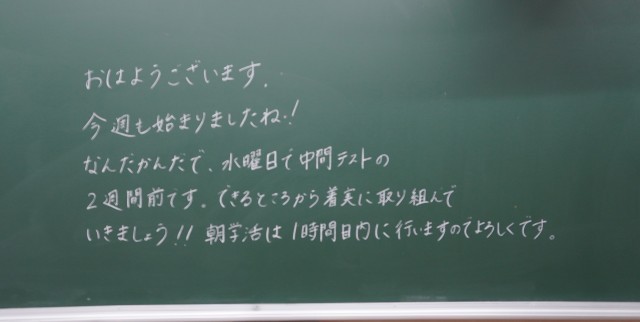 おはようございます。
今週も始まりましたね!
なんだかんだで、水曜日で中間テストの
2週間前です。できるところから着実に取り組んで
いきましょう!! 朝学活は1時間目内に行いますのでよろしくです。